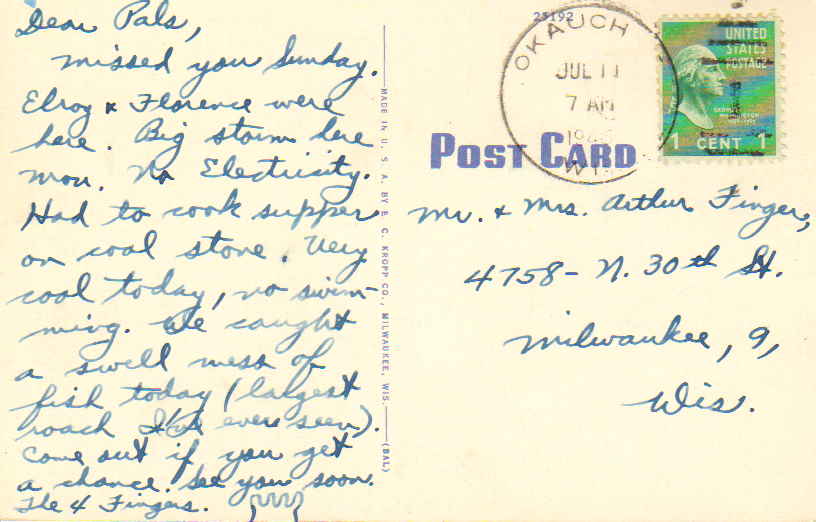 Dear Pals,
missed you Sunday.
Elroy & Florence were
here. Big storm here
mon. No Electricity.
Had to cook supper
on coal stove. Very
cool today, no swim-
ming. We caught
a swell mess of
fish today (largest
roach I've ever seen).
Come out if you get
a chance. See you soon.
The 4 Fingers.
MADE IN U. S. A. BY E. C. KROPP CO., MILWAUKEE, WIS. (BAL)
25192
OKAUCH
JUL 11
7 AM
19
WI
UNITED
STATES
POSTAGE
1 CENT 1
POST CARD
Mr. & Mrs. Arthur Finger,
4758 - N. 30th St.
Milwaukee, 9,
Wis.